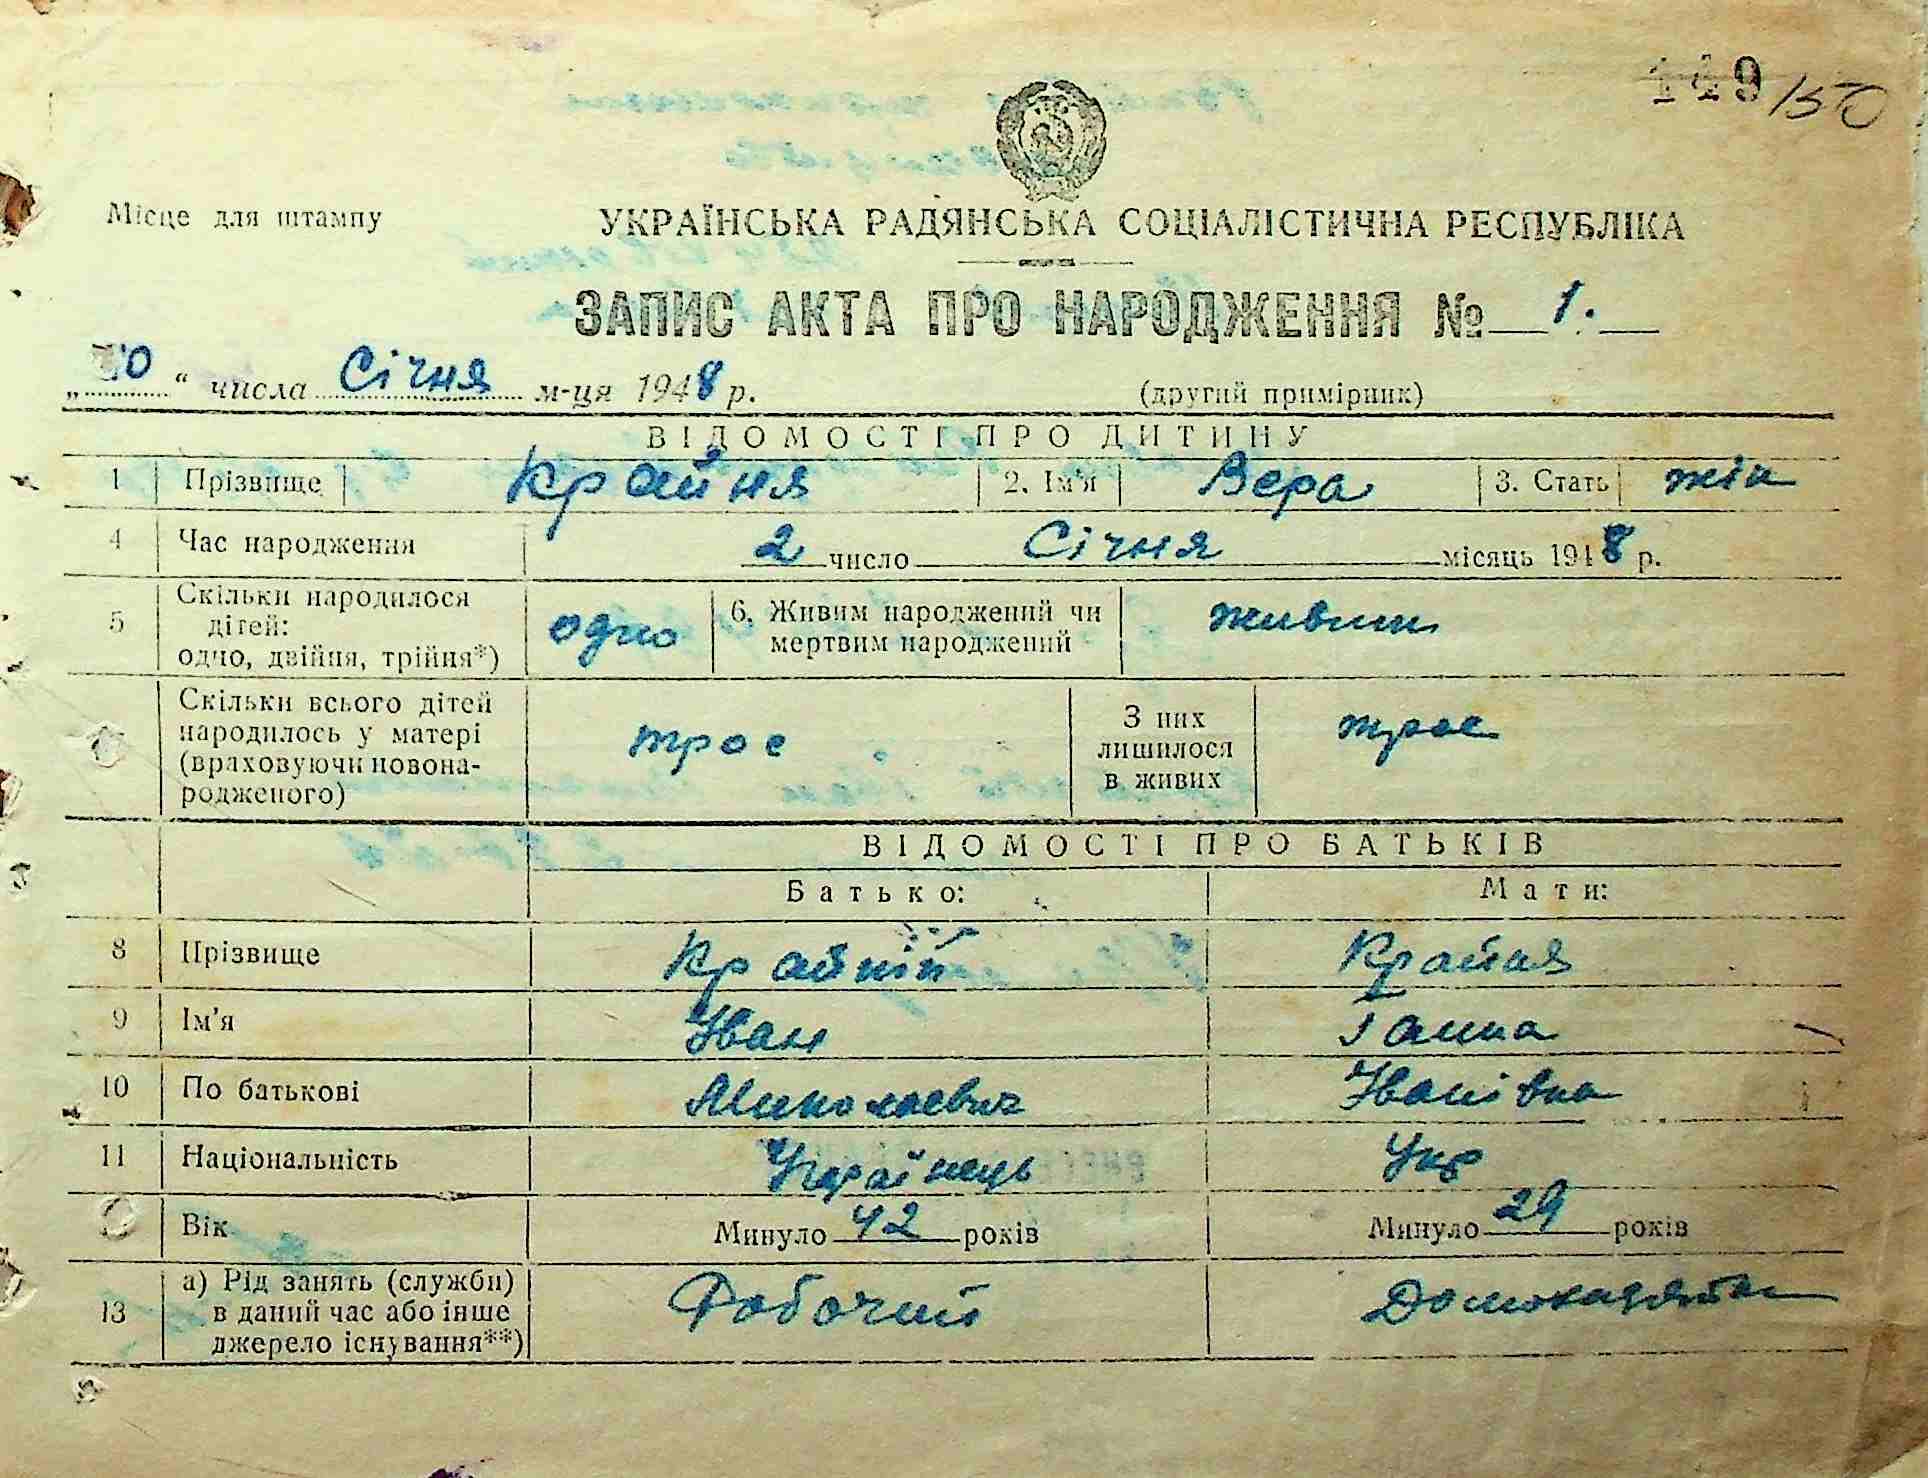 149 /50
Місце для штампу
УКРАЇНСЬКА РАДЯНСЬКА СОЦІАЛІСТИЧНА РЕСПУБЛІКА
ЗАПИС АКТА ПРО НАРОДЖЕННЯ № 1.
„10“ числа Січня м-ця 1948 р. (другий примірник)
ВІДОМОСТІ ПРО ДИТИНУ
1 Прізвище Крайня 2. Ім'я Вера 3. Стать жін
4 Час народження 2 число Січня місяць 1948 р.
Скільки народилося
5 дітей: одно 6. Живим народжений чи живим
одно, двійня, трійня*) мертвим народжений
Скільки всього дітей
народилось у матері троє З них троє
(враховуючи новона- лишилося
родженого) в живих
ВІДОМОСТІ ПРО БАТЬКІВ
Батько: Мати:
8 Прізвище Крайній Крайня
9 Ім'я Іван Ганна
10 По батькові Миколаевич Іванівна
11 Національність Українець Укр
Вік Минуло 42 років Минуло 29 років
а) Рід занять (служби)
13 в даний час або інше Робочий
джерело існування**)